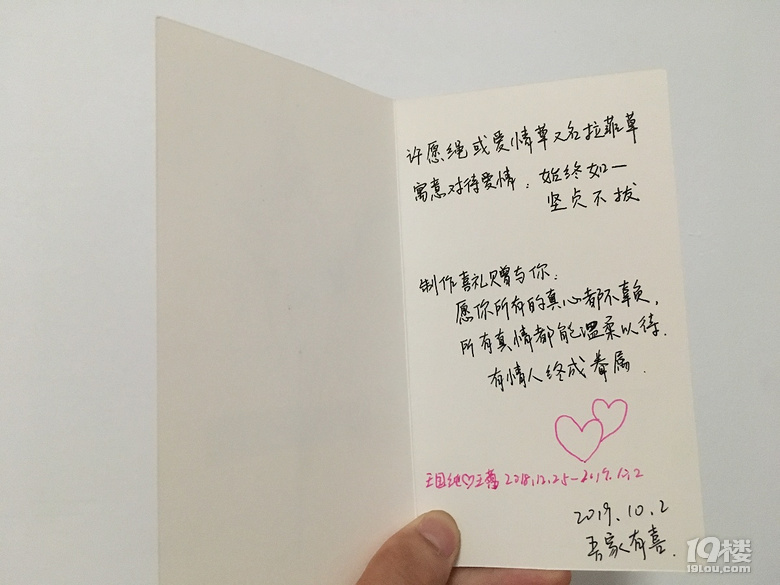 许愿绳或爱情草又名拉菲草
寓意对待爱情：始终如一
坚贞不拔
制作喜礼赠与你:
愿你所有的真心都不辜负,
所有真情都能温柔以待.
有情人终成眷属.
王国纯♡王蕾 2018.12.25-2019.10.2
2019.10.2
吾家有喜.
19楼
19lou.com